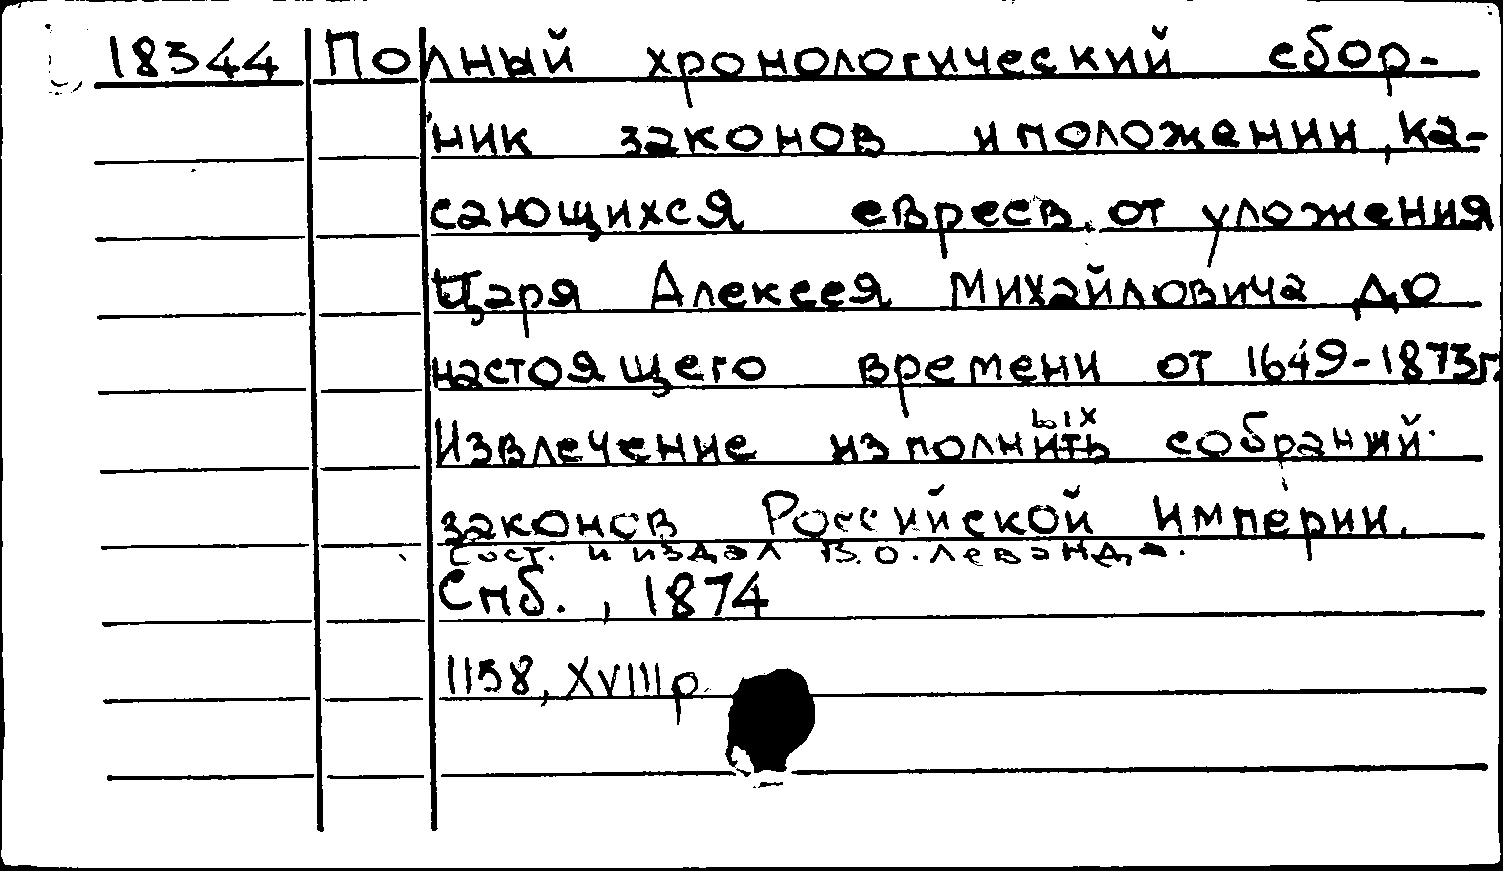 18344 Полный хронологический сбор-
ник законов и положении, ка-
сающихся евреев, от уложения
Царя Алексея Михайловича до
настоящего времени от 1649-1873г.
Извлечение из полных собраний
законов Российской Империи.
Сост. и издал В.О. Леванда.
Спб., 1874
1158, XVIII р.